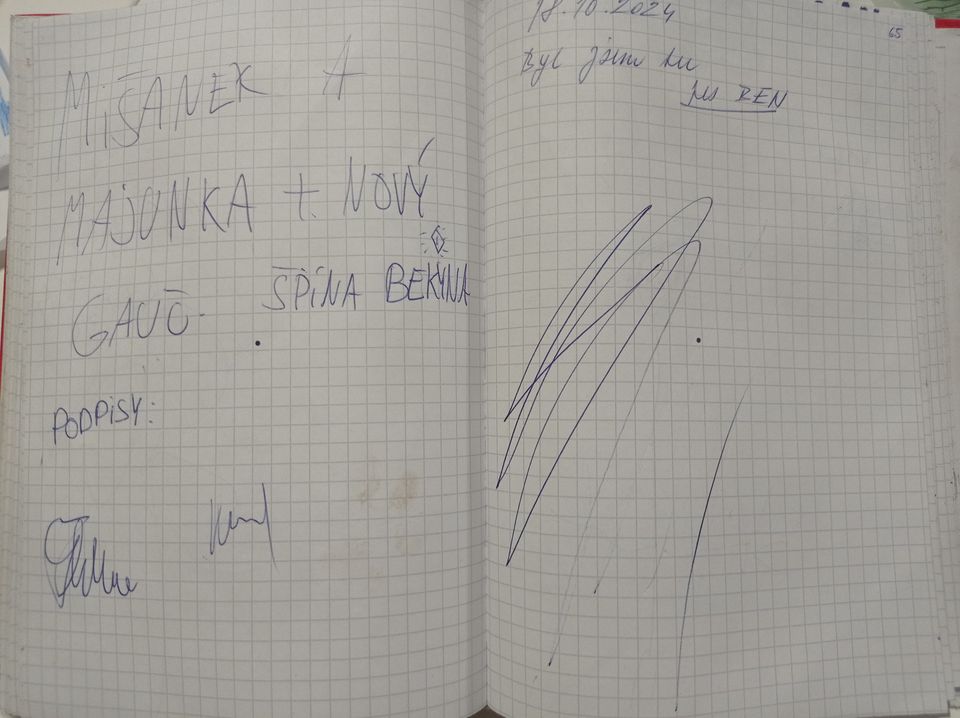 MIŠANEK A
MAJUNKA + NOVÝ
GAUČ. ŠPÍNA BEKYNA
PODPISY:
65
18.10.2024
Byl jsem tu
pes BEN